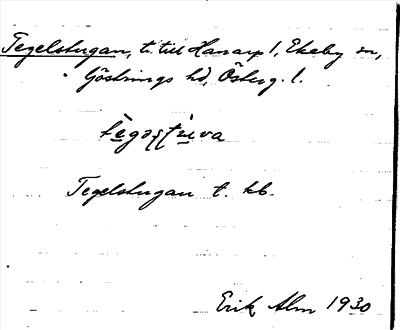 Tegelstugan, t. till Hararp 1, Ekeby sn,
Göstrings hd, Österg. l.
Tegelstugan t. kb.
Erik Alm 1930